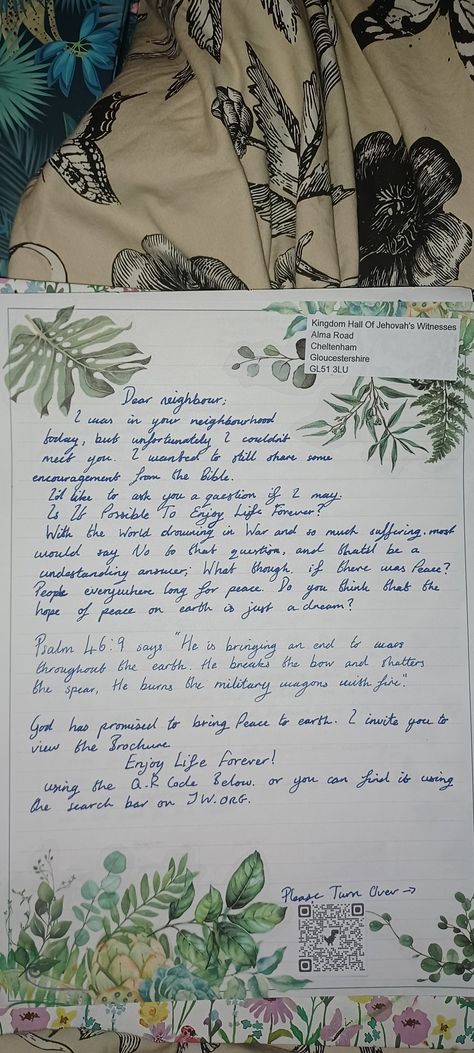 Kingdom Hall Of Jehovah's Witnesses
Alma Road
Cheltenham
Gloucestershire
GL51 3LU
Dear neighbour;
I was in your neighbourhood
today, but unfortunately I couldn't
meet you. I wanted to still share some
encouragement from the Bible.
I'd like to ask you a question if I may.
Is It Possible To Enjoy Life Forever?
With the World drowning in War and so much suffering, most
would say No to that question, and that'd be a
understanding answer; What though, if there was Peace?
People everywhere long for peace. Do you think that the
hope of peace on earth is just a dream?
Psalm 46:9 says "He is bringing an end to wars
throughout the earth. He breaks the bow and shatters
the spear, He burns the military wagons with fire."
God has promised to bring Peace to earth. I invite you to
view the Brochure
Enjoy Life Forever!
using the Q.R Code Below. or you can find it using
the search bar on JW.ORG.
Please Turn Over →